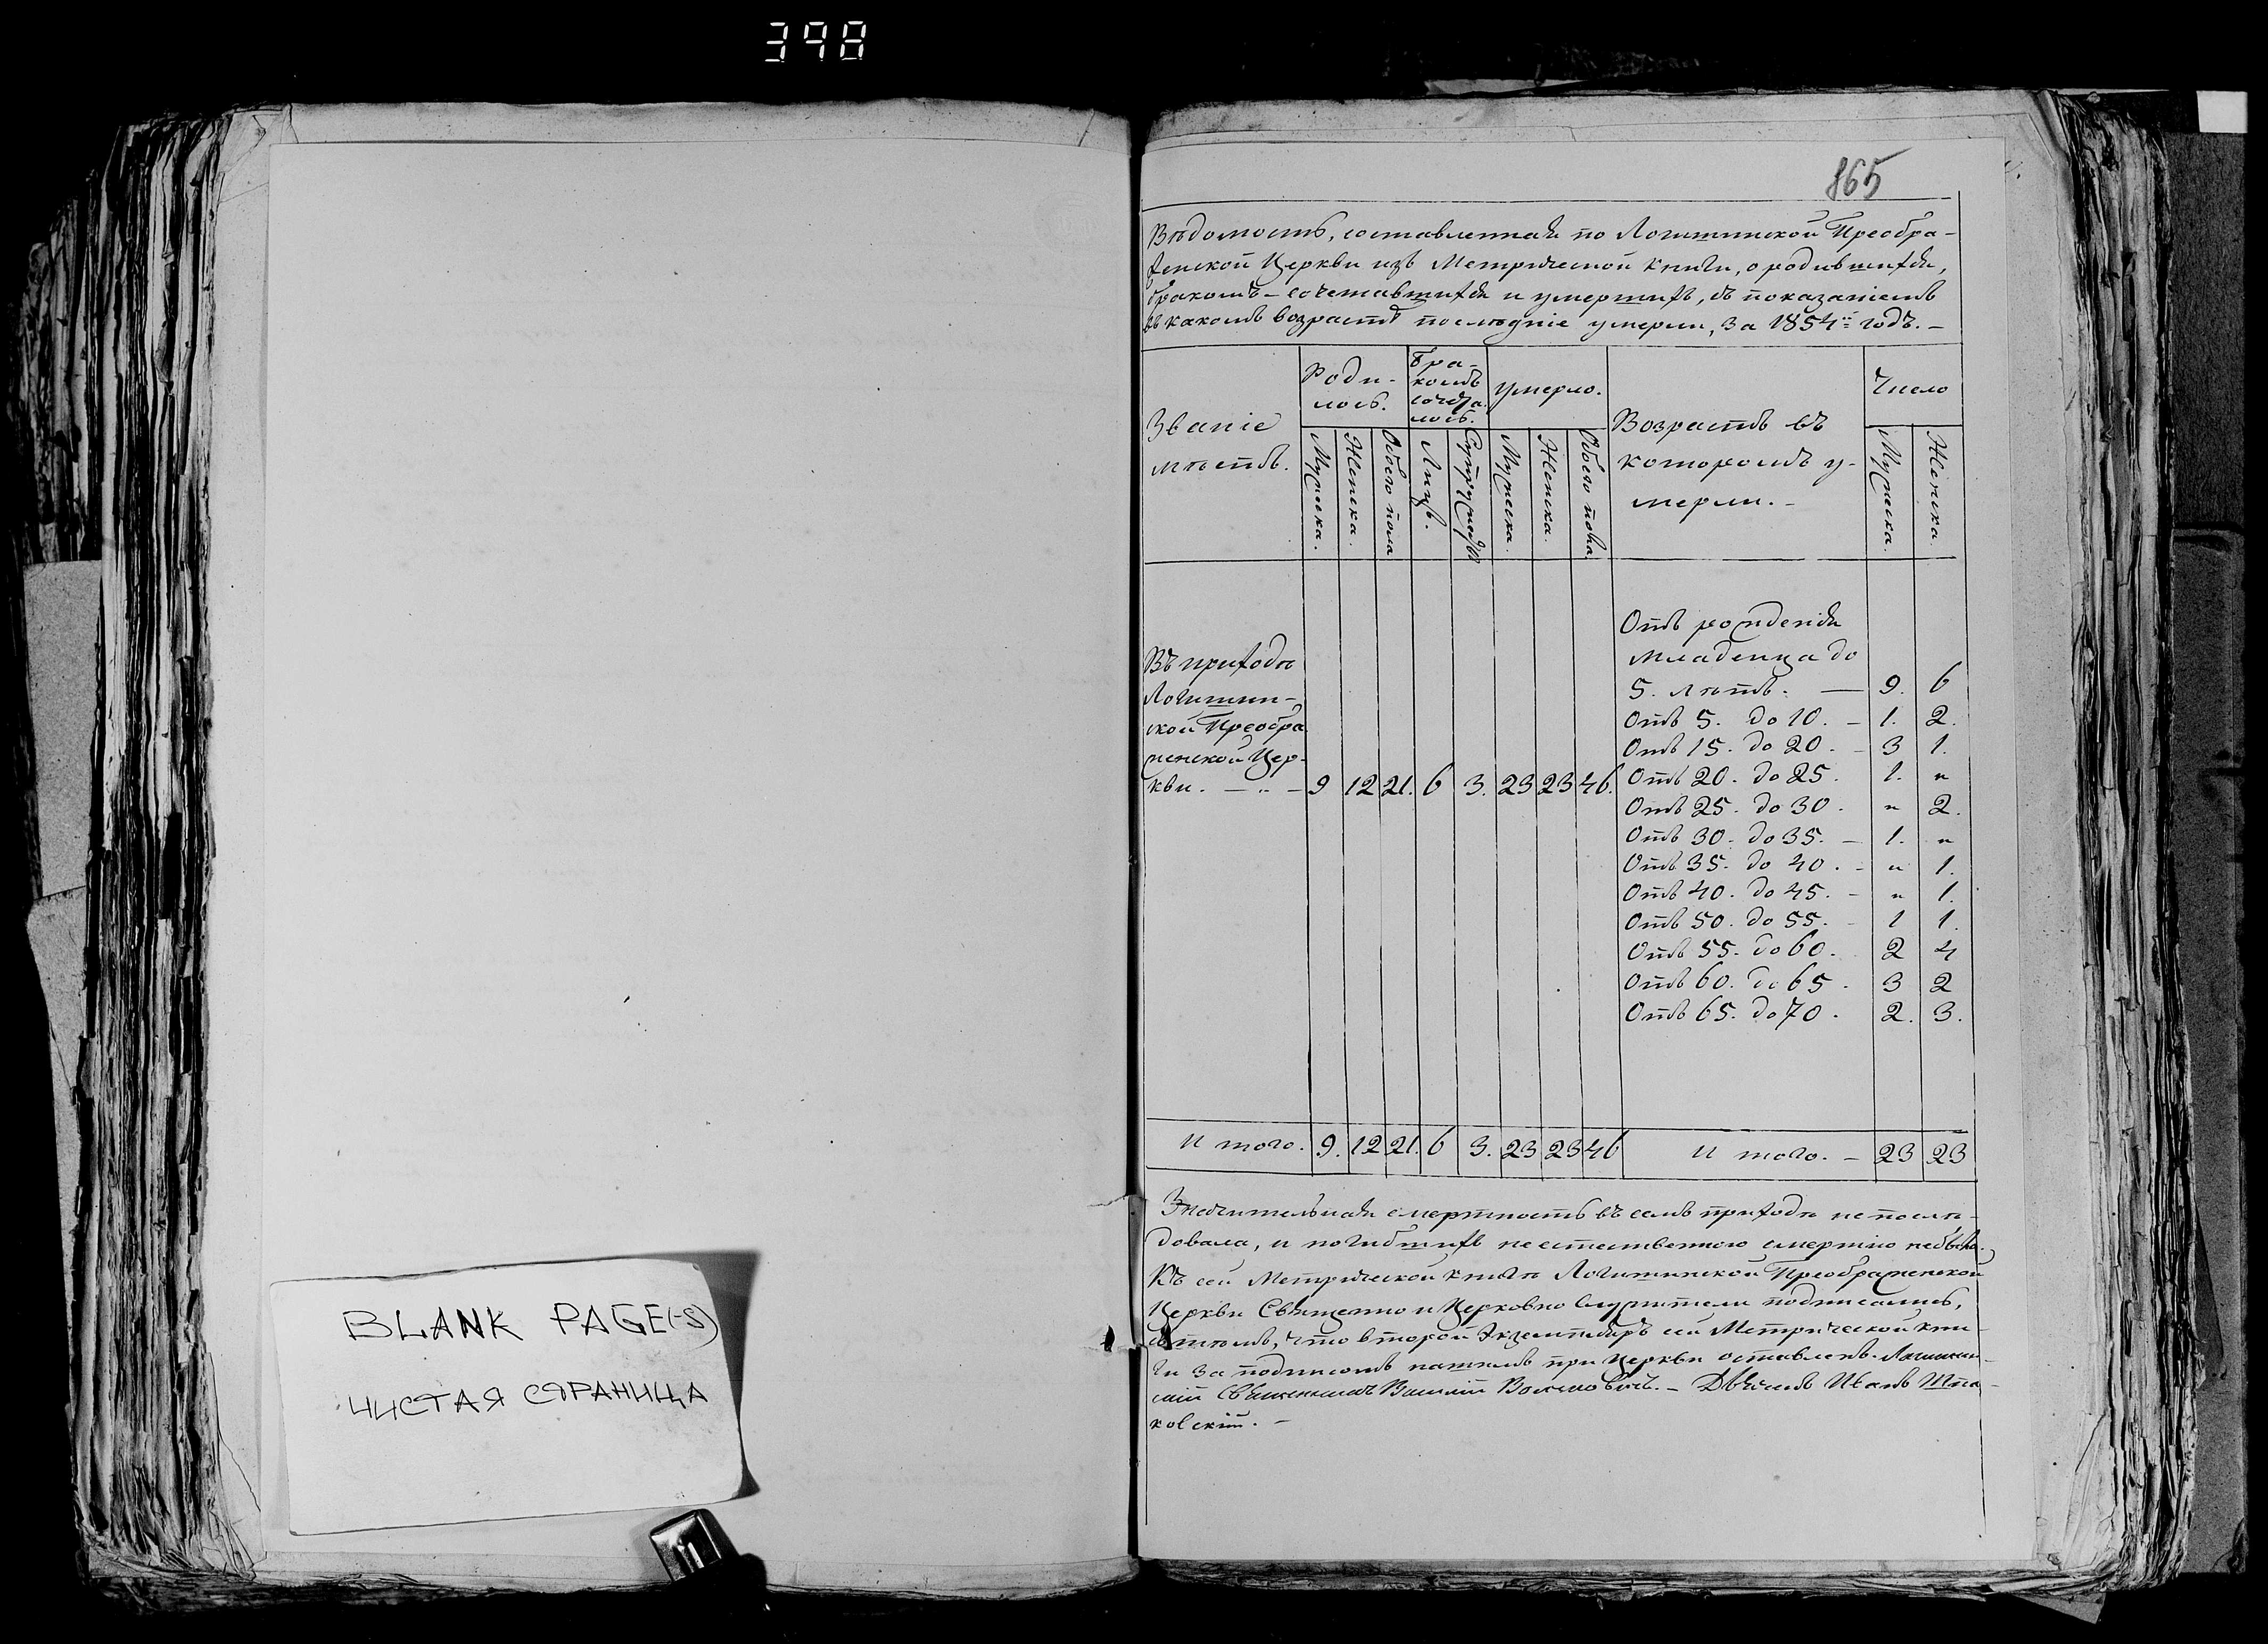 398
BLANK PAGE(-S)
ЧИСТАЯ СТРАНИЦА
865
Вѣдомость, составленная по Логишинской Преобра-
женской Церкви изъ Метрической книги, о родившихся,
бракомъ-сочетавшихся и умершихъ, съ показаніемъ
въ какомъ возрастѣ послѣдніе умерли, за 1854й годъ. —
Званіе мѣстъ.
Роди-
лось.
Бра-
комъ
сочета-
лось.
умерло.
Возрастъ въ
которомъ у-
мерли. —
Число
Мужеска.
Женска.
Обоего пола
Лицъ.
Супружествъ
Мужеска.
Женска.
Обоего пола
Мужеска.
Женска.
Въ приходѣ
Логишин-
ской Преобра
женской Цер-
кви. — „ — 9 12 21. 6 3. 23 23 46.
Отъ рожденія
младенца до
5. лѣтъ. — 9. 6
Отъ 5. до 10. — 1. 2.
Отъ 15. до 20. — 3 1.
Отъ 20. до 25. 1. „
Отъ 25. до 30. „ 2.
Отъ 30. до 35. — 1. „
Отъ 35. до 40. - „ 1.
Отъ 40. до 45. - „ 1.
Отъ 50. до 55. - 1 1.
Отъ 55. до 60. 2 4
Отъ 60. до 65. 3 2
Отъ 65. до 70. 2. 3.
И того. 9. 12 21. 6 3. 23 23 46 И того. — 23 23
Значительная смертность въ семъ приходѣ не послѣ-
довала, и погибшихъ неестественною смертію небыло.
Къ сей Метрической книгѣ Логишинской Преображенской
Церкви Священно и Церковно служители подписались,
что второй Экземпляръ сей Метрической кни-
ги за подписомъ нашимъ при Церкви оставленъ. Логишин-
скій Священникъ Василій — Дьячекъ Иванъ Шпа-
ковскій. —